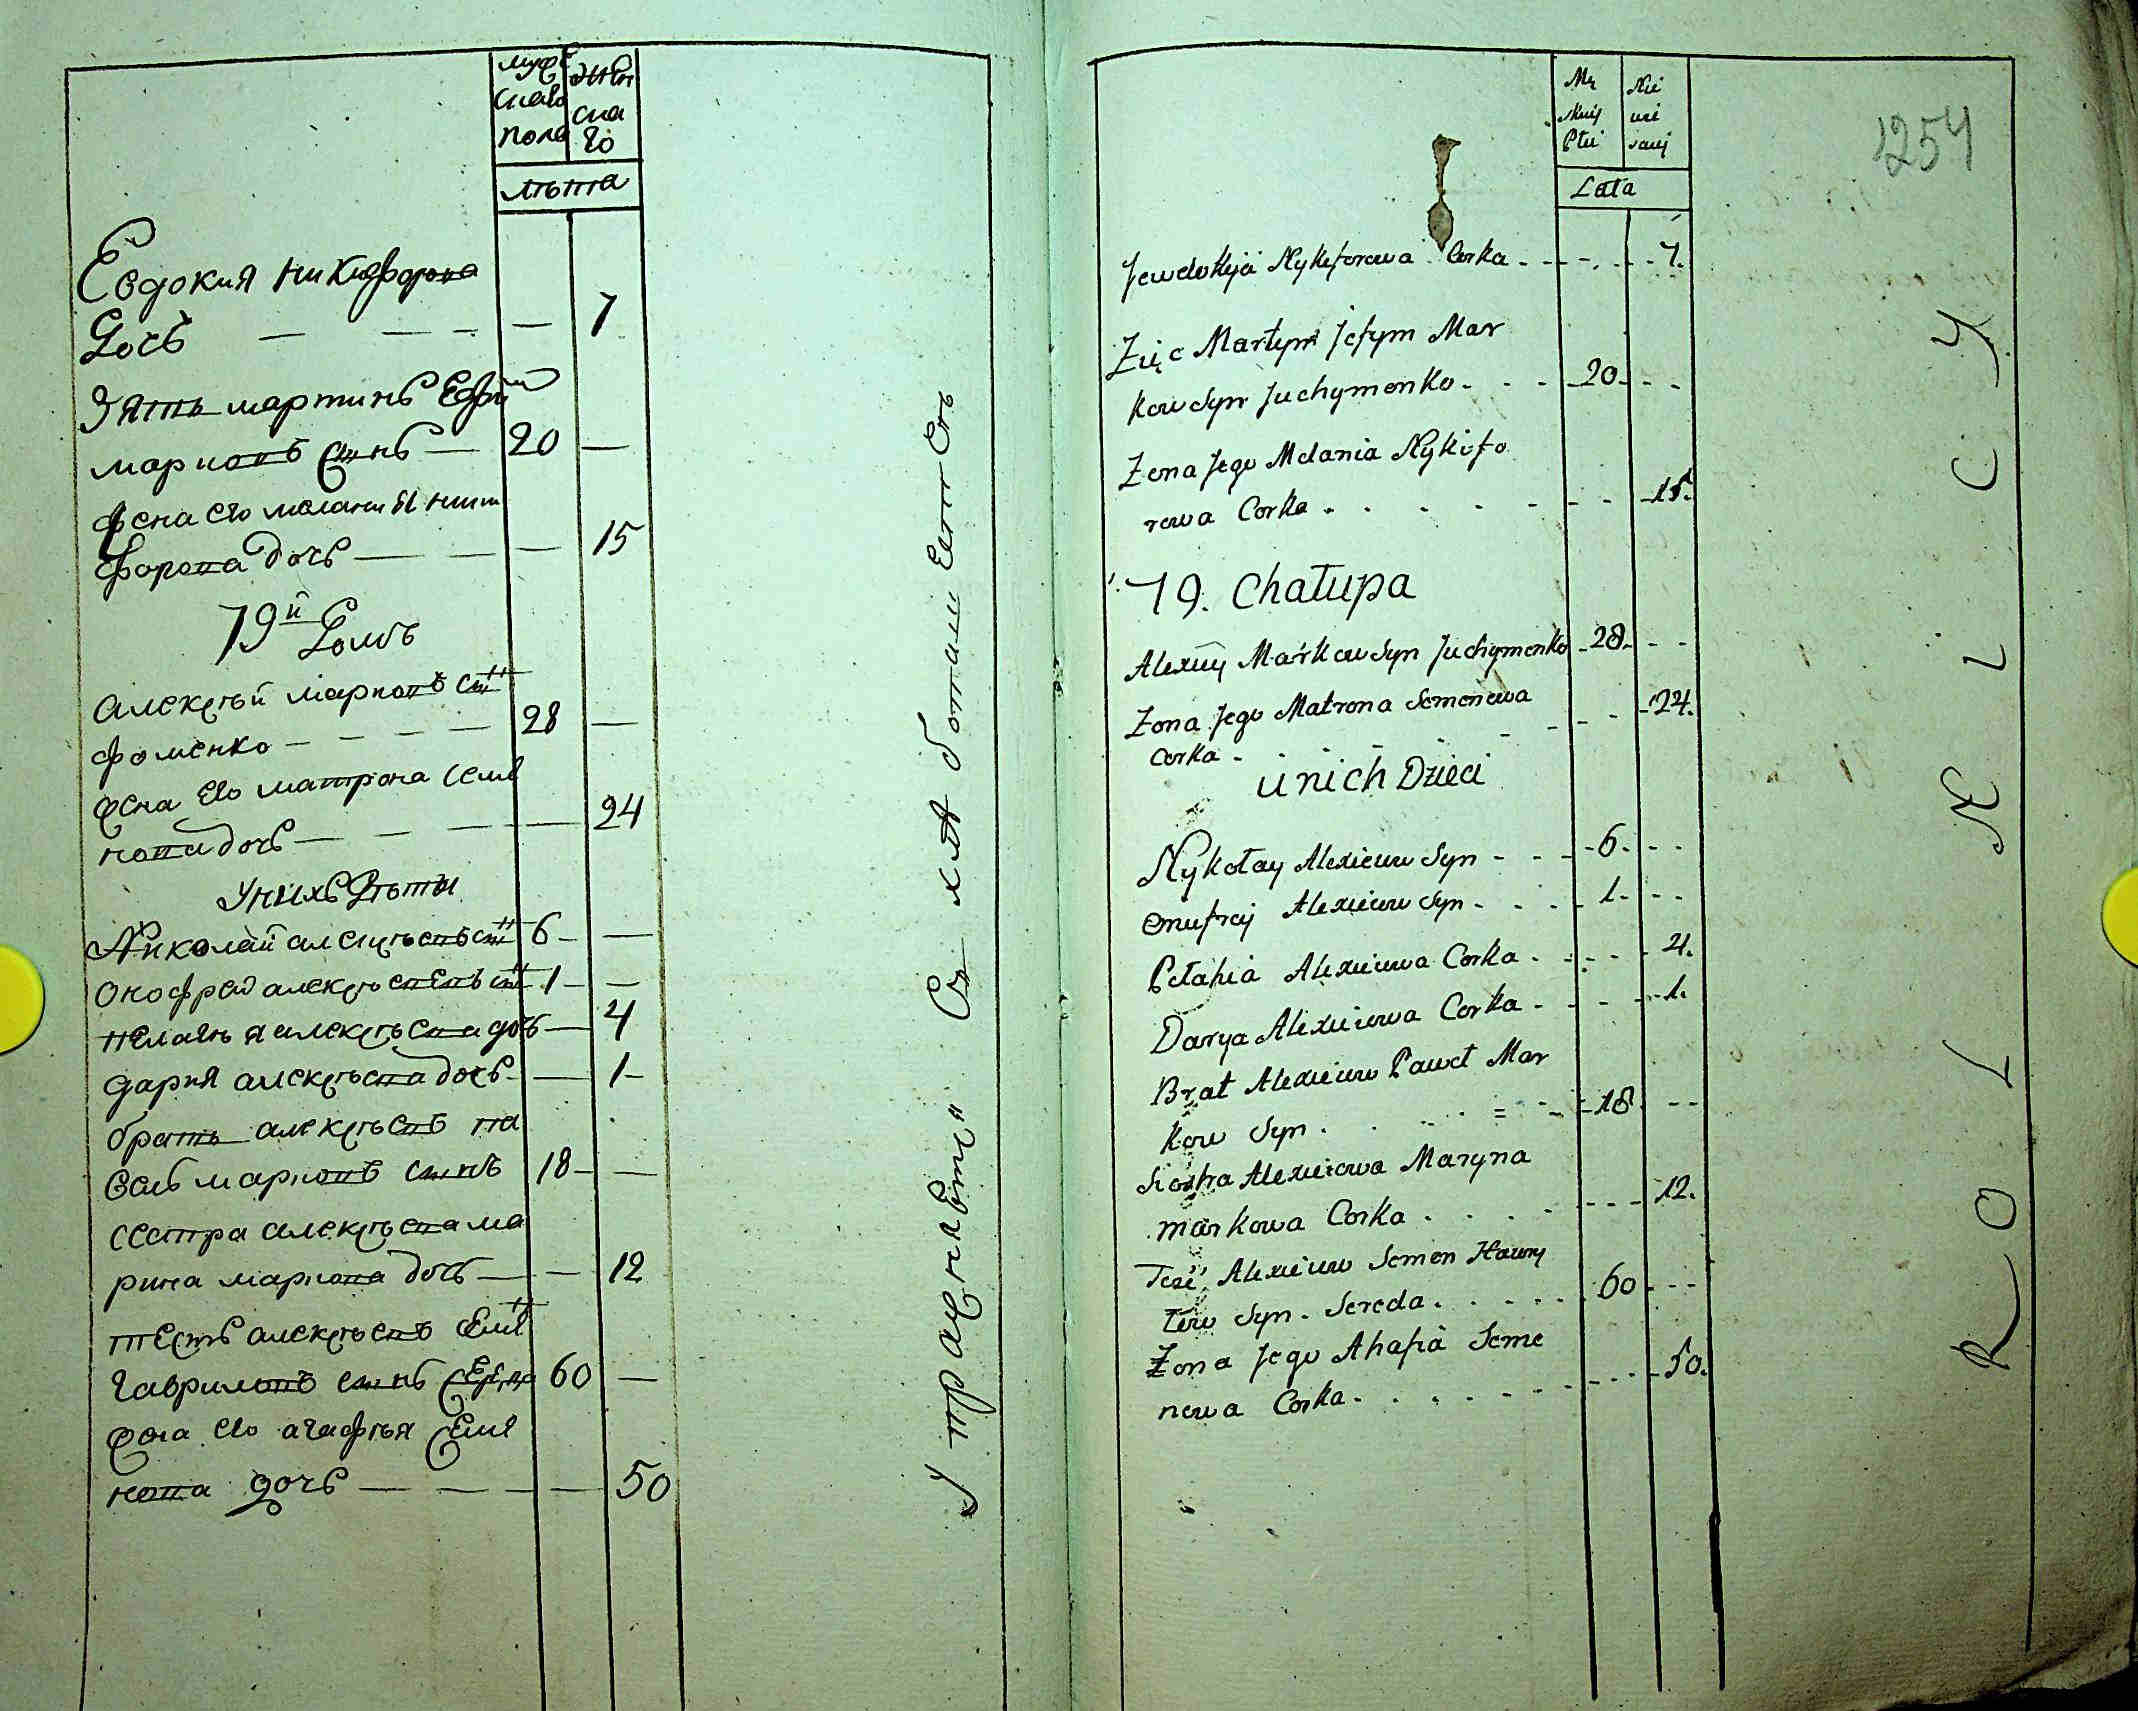 мужескаго пола
женскаго
лѣта
Евдокия никифорова
Дочь — — — — 7
Зять мартинъ Ефим
марковъ сынъ — 20 —
жена его мелания ники
форова дочь — — — 15
79й Домъ
алексѣй марковъ сынъ
фоменко — — — — 28 —
жена его матрона семе
нова дочь — — — — 24
У нихъ Дѣти
Николай алексѣевъ сынъ 6 —
онофрей алексѣевъ сынъ 1 —
пелагѣя алексѣева дочь — 4
дария алексѣева дочь — 1
братъ алексѣевъ па
велъ марковъ сынъ 18 —
сестра алексѣева ма
рина маркова дочь — — 12
тесть алексѣевъ семенъ
гавриловъ сынъ середа 60 —
жена его агафѣя семе
нова дочь — — — — 50
Mę skiej Płci
Nie wie sciej
Lata
1254
Jewdokija Nykiforowa Corka 7.
Zięc Martyn Jefym Mar
kow Syn Juchymenko 20
Zona Jego Melania Nykifo
rowa Corka 15.
79. Chałupa
Alexiiy Markow Syn Juchymenko 28
Zona Jego Matrona Semenowa 24.
Corka
u nich Dzieci
Nykołay Alexiiew Syn 6
Onufrij Alexiiew Syn 1
Pełahia Alexiiewa Corka 4.
Darya Alexiiewa Corka 1.
Brat Alexiiew Paweł Mar
kow Syn 18
Siostra Alexiiewa Maryna
markowa Corka 12.
Teść Alexiiew Semen Hawry
łow Syn Sereda 60
Zona Jego Ahafia Seme
nowa Corka 50.
ROL